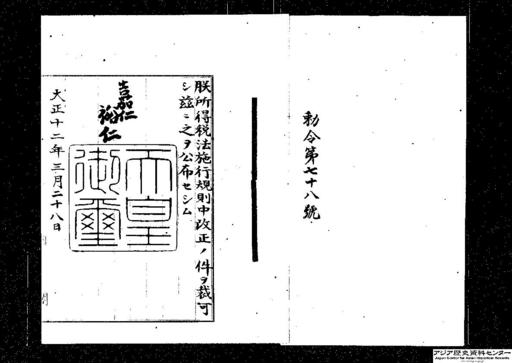 勅令第七十八號
朕所得税法施行規則中改正ノ件ヲ裁可
シ茲ニ之ヲ公布セシム
嘉仁
裕仁
天皇
御璽
大正十二年三月二十八日
アジア歴史資料センター
Japan Center for Asian Historical Records